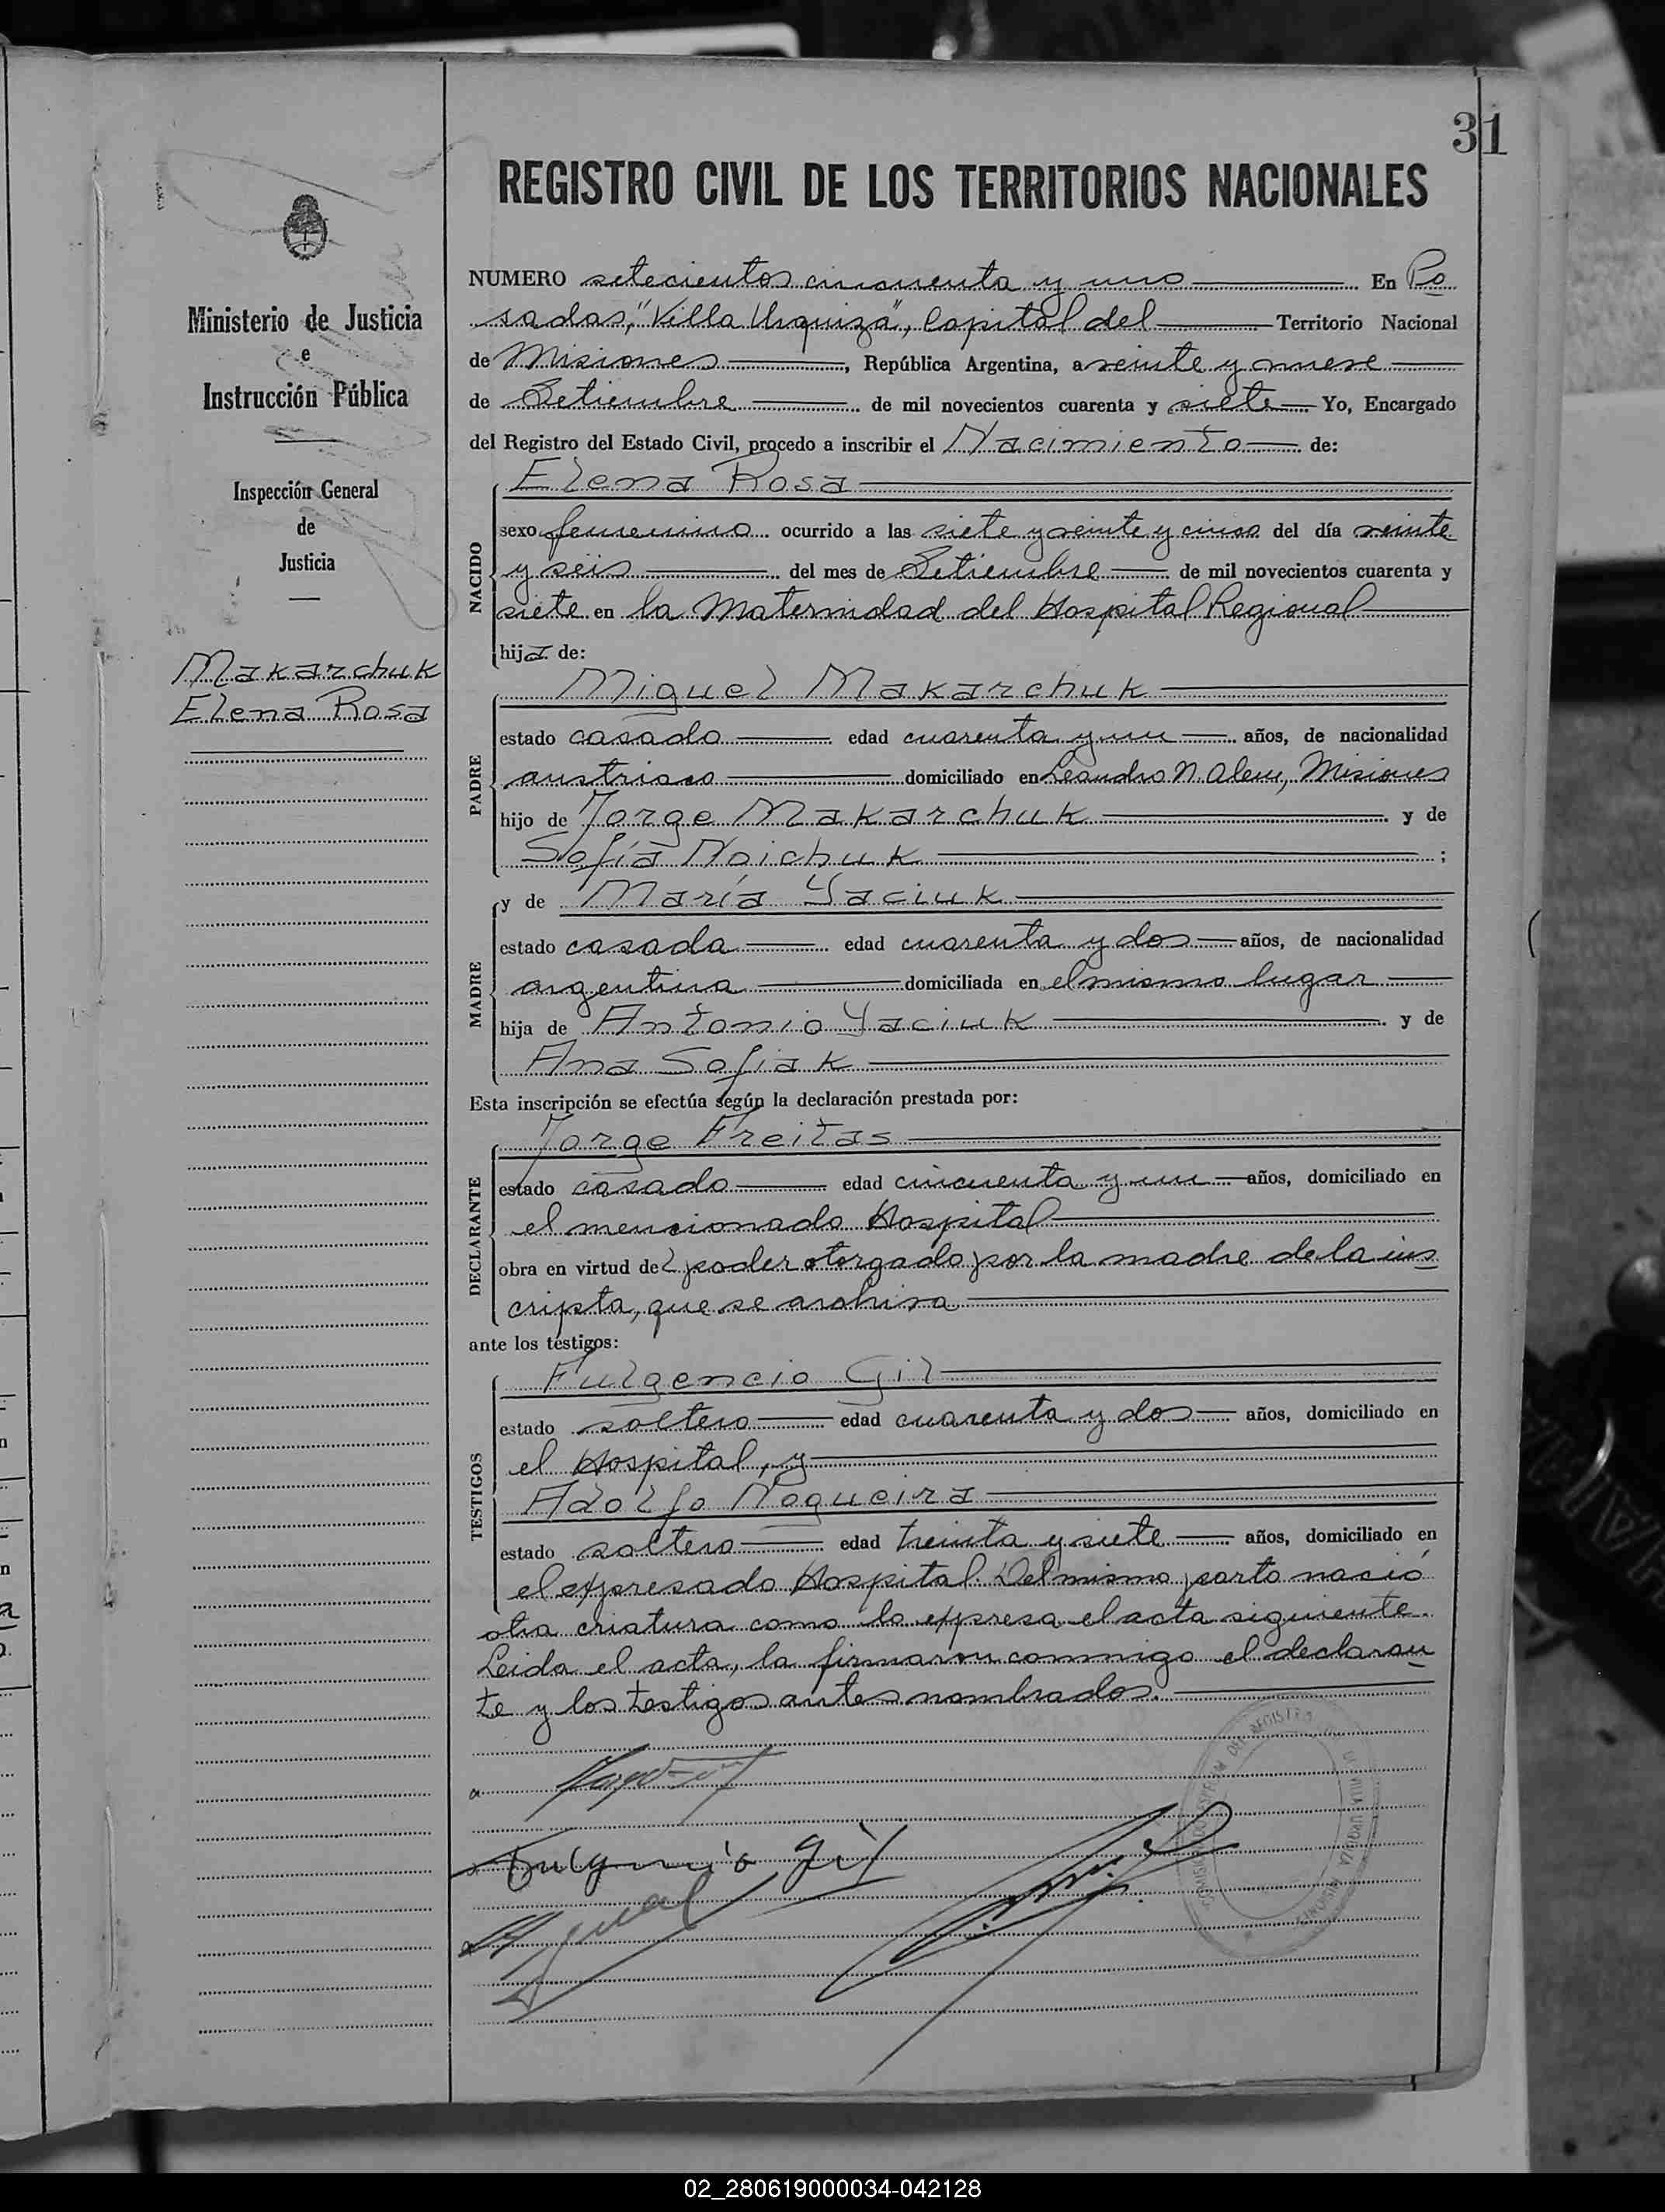 31
REGISTRO CIVIL DE LOS TERRITORIOS NACIONALES
Ministerio de Justicia
e
Instrucción Pública
Inspección General
de
Justicia
Makarchuk
Elena Rosa
NUMERO setecientos cincuenta y uno En Po
sadas, "Villa Urquiza", Capital del Territorio Nacional
de Misiones, República Argentina, a veinte y nueve
de Setiembre de mil novecientos cuarenta y siete Yo, Encargado
del Registro del Estado Civil, procedo a inscribir el Nacimiento de:
NACIDO
Elena Rosa
sexo femenino ocurrido a las siete y veinte y cinco del día veinte
y seis del mes de Setiembre de mil novecientos cuarenta y
siete en la Maternidad del Hospital Regional
hija de:
PADRE
Miguel Makarchuk
estado casado edad cuarenta y un años, de nacionalidad
austriaco domiciliado en Leandro N. Alem, Misiones
hijo de Jorge Makarchuk y de
Sofía Noichuk ;
MADRE
y de María Yaciuk
estado casada edad cuarenta y dos años, de nacionalidad
argentina domiciliada en el mismo lugar
hija de Antonio Yaciuk y de
Ana Sofiak
Esta inscripción se efectúa según la declaración prestada por:
DECLARANTE
Jorge Freitas
estado casado edad cincuenta y un años, domiciliado en
el mencionado Hospital
obra en virtud del poder otorgado por la madre de la ins
cripta, que se archiva
ante los testigos:
TESTIGOS
Fulgencio Gil
estado soltero edad cuarenta y dos años, domiciliado en
el Hospital, y
Adolfo Nogueira
estado soltero edad treinta y siete años, domiciliado en
el expresado Hospital. Del mismo parto nació
otra criatura como lo expresa el acta siguiente.
Leida el acta, la firmaron conmigo el declaran
te y los testigos antes nombrados.
Fulgencio Gil
02_280619000034-042128